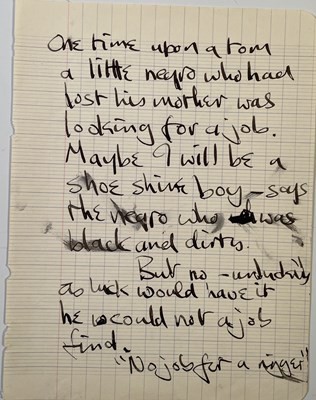 One time upon a tom
a little negro who had
lost his mother was
looking for a job.
Maybe I will be a
shoe shine boy - says
the negro who was
black and dirty.
But no - unluckily
as luck would have it
he could not a job
find.
"No job for a nigger"